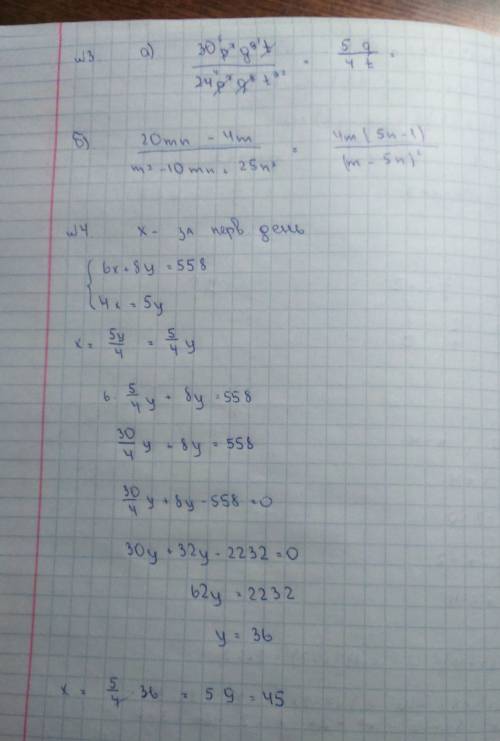 №3. а) 30p⁴q⁹t / 24p⁴q⁸t² = 5q / 4t.
б) 20mn - 4m / m² - 10mn + 25n² = 4m(5n-1) / (m - 5n)²
№4. x - за перв день
{ 6x + 8y = 558
4x = 5y
x = 5y/4 = 5/4 y
6 · 5/4 y + 8y = 558
30/4 y + 8y = 558
30/4 y + 8y - 558 = 0
30y + 32y - 2232 = 0
62y = 2232
y = 36
x = 5/4 · 36 = 5 9 = 45